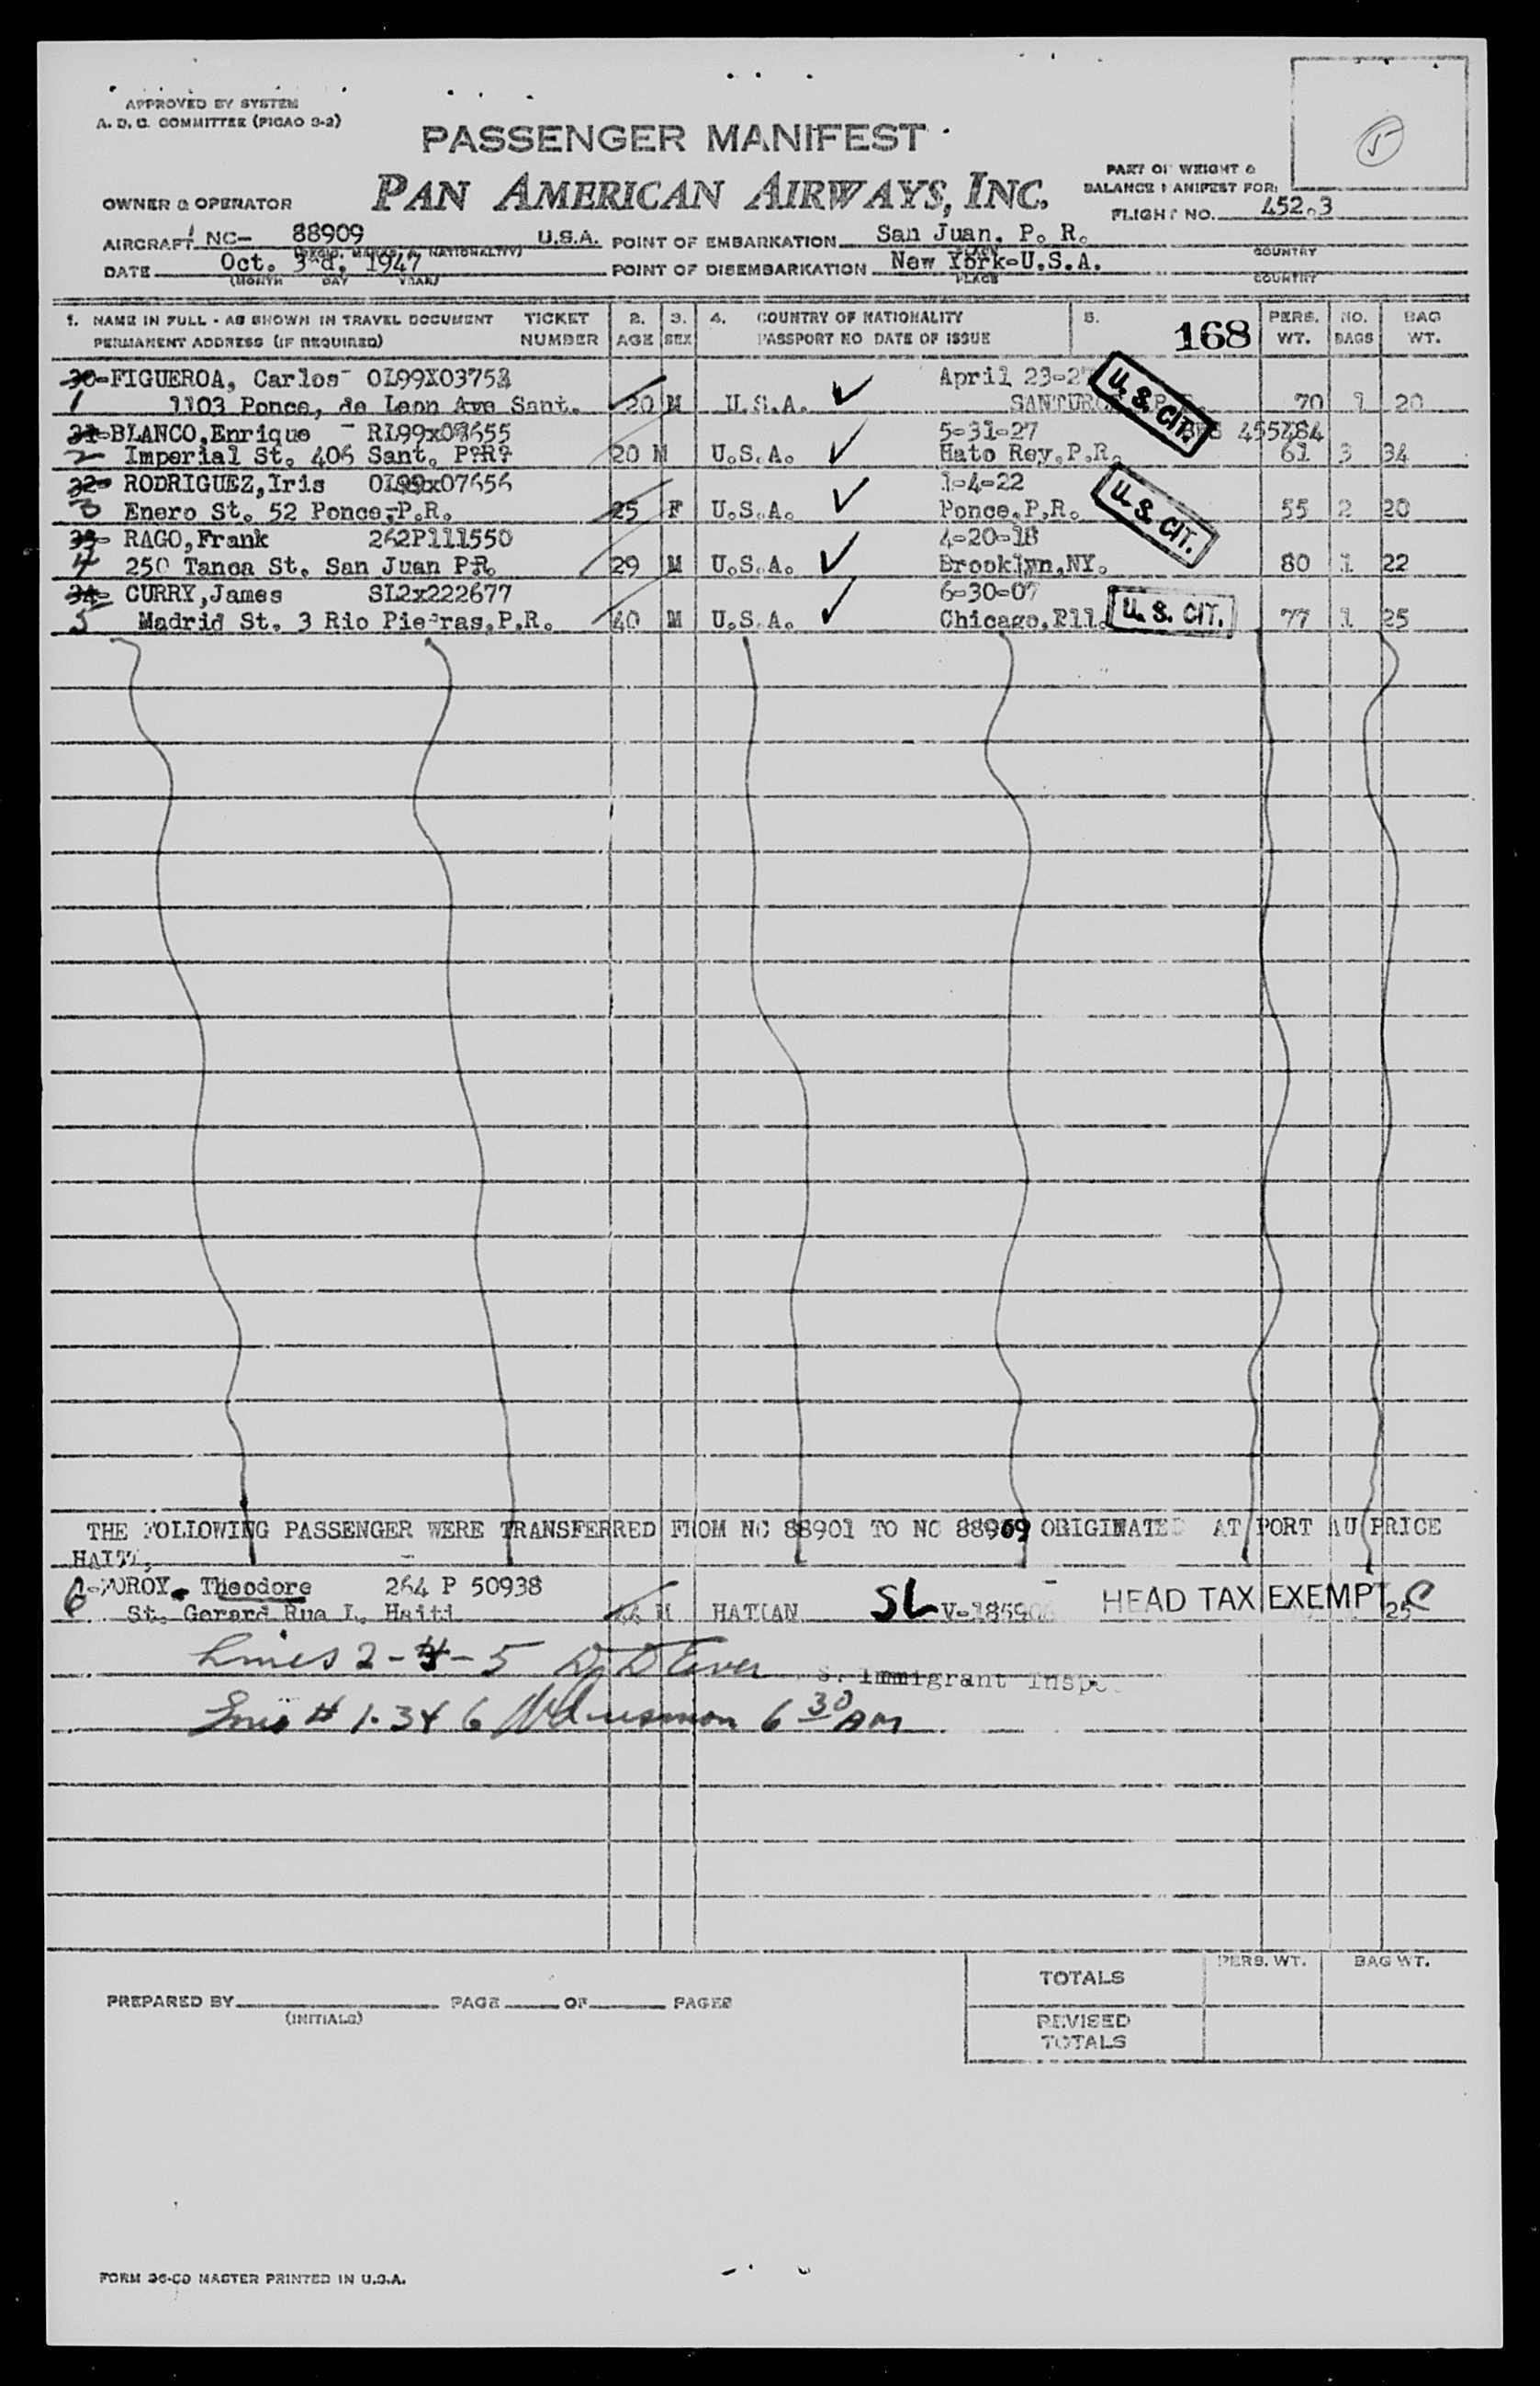 APPROVED BY SYSTEM
A. D. C. COMMITTEE (PICAO 3-2)
5
PASSENGER MANIFEST
PAN AMERICAN AIRWAYS, INC.
PART OF WEIGHT &
BALANCE MANIFEST FOR:
FLIGHT NO. 452.3
OWNER & OPERATOR
AIRCRAFT NC- 88909 U.S.A. POINT OF EMBARKATION San Juan, P. R.
PLACE COUNTRY
DATE Oct. 3-d, 1947 POINT OF DISEMBARKATION New York-U.S.A.
(MONTH DAY YEAR) PLACE COUNTRY
1. NAME IN FULL - AS SHOWN IN TRAVEL DOCUMENT TICKET 2. 3. 4. COUNTRY OF NATIONALITY 5. 168 PERS. NO. BAG
PERMANENT ADDRESS (IF REQUIRED) NUMBER AGE SEX PASSPORT NO DATE OF ISSUE WT. BAGS WT.
30-FIGUEROA, Carlos- OL99X03752 April 23-27 U. S. CIT.
1 1103 Ponce, de Leon Ave Sant. 20 M U.S.A. 70 1 20
31-BLANCO,Enrique - RL99x07655 5-31-27 455484
2 Imperial St. 406 Sant. P?R? 20 M U.S.A. Hato Rey,P.R. 61 3 34
32- RODRIGUEZ,Iris OL99x07656 1-4-22 U. S. CIT.
3 Enero St. 52 Ponce,-P.R. 25 F U.S.A. Ponce,P.R. 55 2 20
33- RAGO,Frank 262P111550 4-20-18
4 250 Tanca St. San Juan PR. 29 M U.S.A. Brooklyn,NY. 80 1 22
34- CURRY,James SL2x222677 6-30-07 U. S. CIT.
5 Madrid St. 3 Rio Piedras,P.R. 40 M U.S.A. Chicago,Ell. 77 1 25
THE FOLLOWING PASSENGER WERE TRANSFERRED FROM NC 88901 TO NC 88909 ORIGINATED AT PORT AU PRICE
HAITI,
6 Theodore 264 P 50938
St. Gerard Rue I. Haiti M HATIAN SL HEAD TAX EXEMPT 25
Lines 2-4-5 S. Immigrant Insp
Lines # 1. 3 & 6 6 30 AM
TOTALS PERS. WT. BAG WT.
PREPARED BY (INITIALS) PAGE OF PAGES
REVISED
TOTALS
FORM 36-CO MASTER PRINTED IN U.S.A.